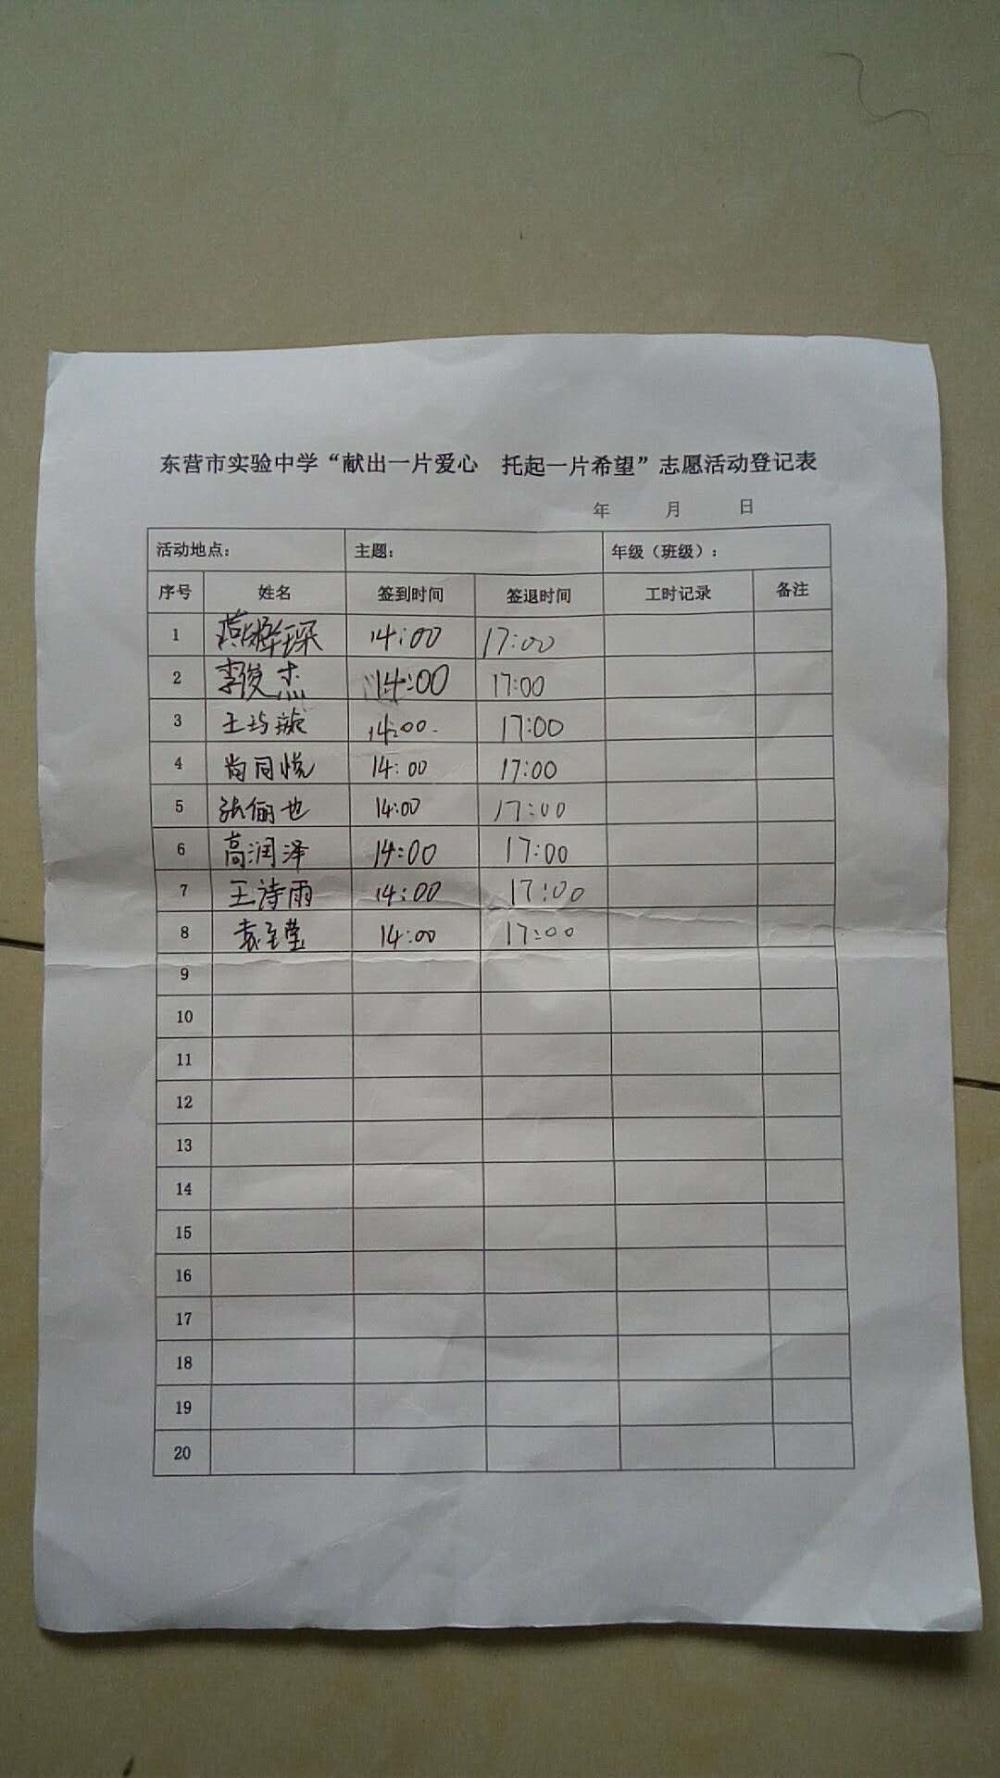 东营市实验中学“献出一片爱心 托起一片希望”志愿活动登记表
年 月 日
活动地点： 主题： 年级（班级）：
序号 姓名 签到时间 签退时间 工时记录 备注
1 14:00 17:00
2 李俊杰 14:00 17:00
3 14:00 17:00
4 尚同悦 14:00 17:00
5 张俪也 14:00 17:00
6 高润泽 14:00 17:00
7 王诗雨 14:00 17:00
8 14:00 17:00
9
10
11
12
13
14
15
16
17
18
19
20